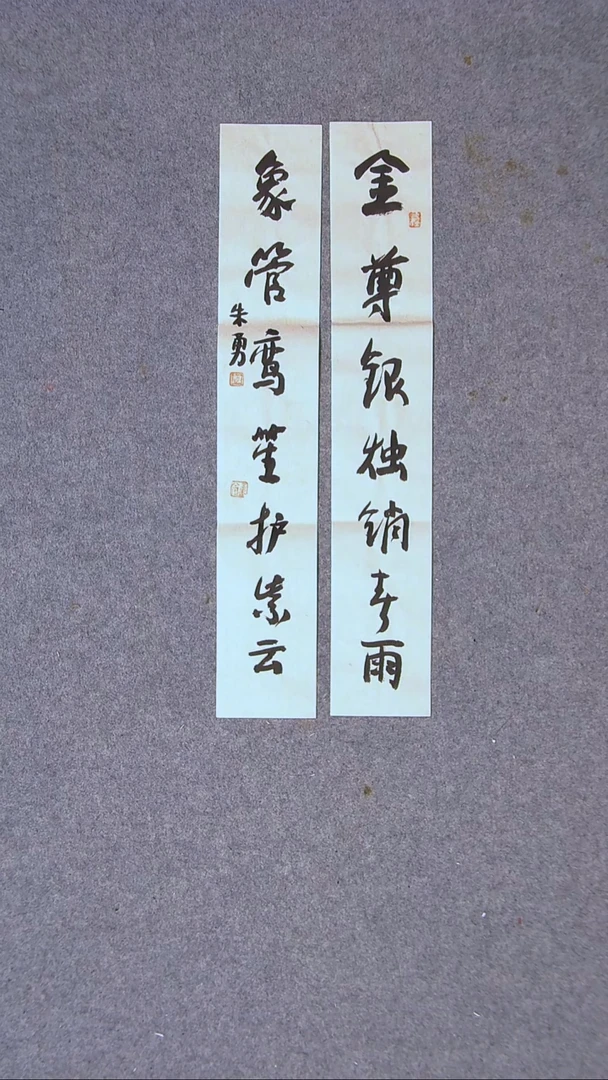 金尊银烛销春雨
象管鸾笙护紫云
朱勇